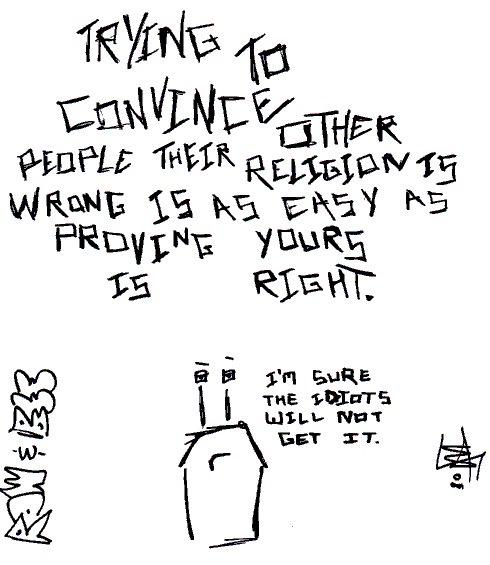 TRYING TO
CONVINCE OTHER
PEOPLE THEIR RELIGION IS
WRONG IS AS EASY AS
PROVING YOURS
IS RIGHT.
I'M SURE
THE IDIOTS
WILL NOT
GET IT.